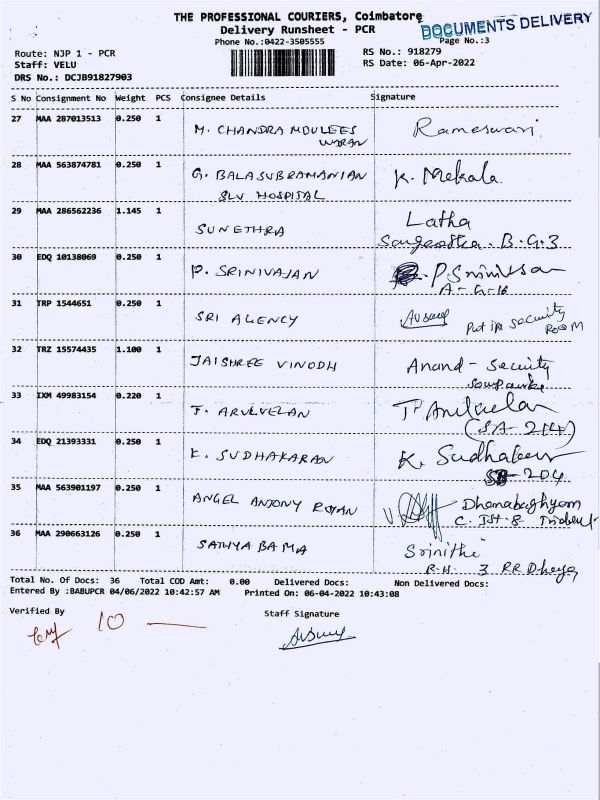 THE PROFESSIONAL COURIERS, Coimbatore
DOCUMENTS DELIVERY
Delivery Runsheet - PCR
Phone No.:0422-3505555
Page No.:3
Route: NJP 1 - PCR
RS No.: 918279
Staff: VELU
RS Date: 06-Apr-2022
DRS No.: DCJB91827903
S No Consignment No Weight PCS Consignee Details Signature
27 MAA 287013513 0.250 1 M. CHANDRA MOULEES Rameswari
WARAN
28 MAA 563874781 0.250 1 G. BALASUBRAMANIAN K. Mekala
SLV HOSPITAL
29 MAA 286562236 1.145 1 SUNETHRA Latha
B.G.3
30 EDQ 10138069 0.250 1 P. SRINIVAJAN P. Srinivasan
A-G-16
31 TRP 1544651 0.250 1 SRI AGENCY Put in Security
Room
32 TRZ 15574435 1.100 1 JAISHREE VINODH Anand - Security
33 IXM 49983154 0.220 1 T. ARULVELAN
(SA-214)
34 EDQ 21393331 0.250 1 K. SUDHAKARAN K. Sudhakaran
204
35 MAA 563901197 0.250 1 ANGEL ANTONY ROYAN Dhanabaghyam
36 MAA 290663126 0.250 1 SATHYA BAMA Srinithi
3 RR Dheya
Total No. Of Docs: 36 Total COD Amt: 0.00 Delivered Docs: Non Delivered Docs:
Entered By :BABUPCR 04/06/2022 10:42:57 AM Printed On: 06-04-2022 10:43:08
Verified By Staff Signature
10